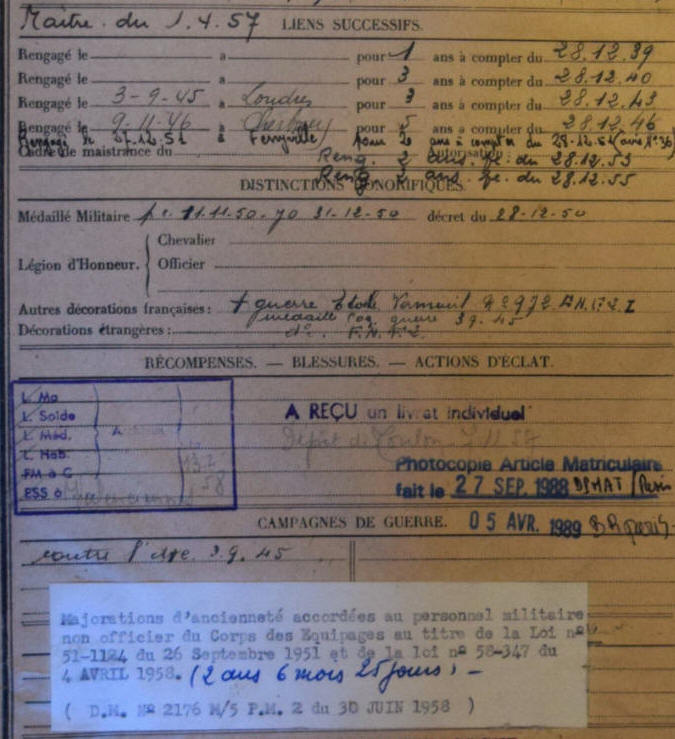 Maître du 1.4.57 LIENS SUCCESSIFS.
Rengagé le a pour 1 ans à compter du 28.12.39
Rengagé le a pour 3 ans à compter du 28.12.40
Rengagé le 3-9-45 a Londres pour 3 ans à compter du 28.12.43
Rengagé le 9-11-46 a Cherbourg pour 5 ans à compter du 28.12.46
Rengagé le a Ferryville pour 2 ans à compter du 28-12-51
Cadre de maistrance du autorisation:
Reng. 2 ans. pc. du 28.12.53
DISTINCTIONS HONORIFIQUES.
Reng. 2 ans. pc. du 28.12.55
Médaillé Militaire pc. 11.11.50. JO 31-12-50 décret du 28-12-50
Chevalier
Légion d'Honneur. Officier
Autres décorations françaises: + guerre Etoile Vermeil N° 972
médaille guerre 39.45
Décorations étrangères:
RÉCOMPENSES. — BLESSURES. — ACTIONS D'ÉCLAT.
L. Ma
L. Solde
L. Méd.
L. Hab.
FM à C
PSS à Valenciennes
A REÇU un livret individuel
Dépôt de Toulon
Photocopie Article Matriculaire
fait le 27 SEP. 1988 DPMAT/Paris
CAMPAGNES DE GUERRE. 05 AVR. 1989
contre l'Axe. 3.9.45
Majorations d'ancienneté accordées au personnel militaire
non officier du Corps des Equipages au titre de la Loi n°
51-1124 du 26 Septembre 1951 et de la loi n° 58-347 du
4 AVRIL 1958. (2 ans 6 mois 25 jours) -
( D.M. N° 2176 M/5 P.M. 2 du 30 JUIN 1958 )